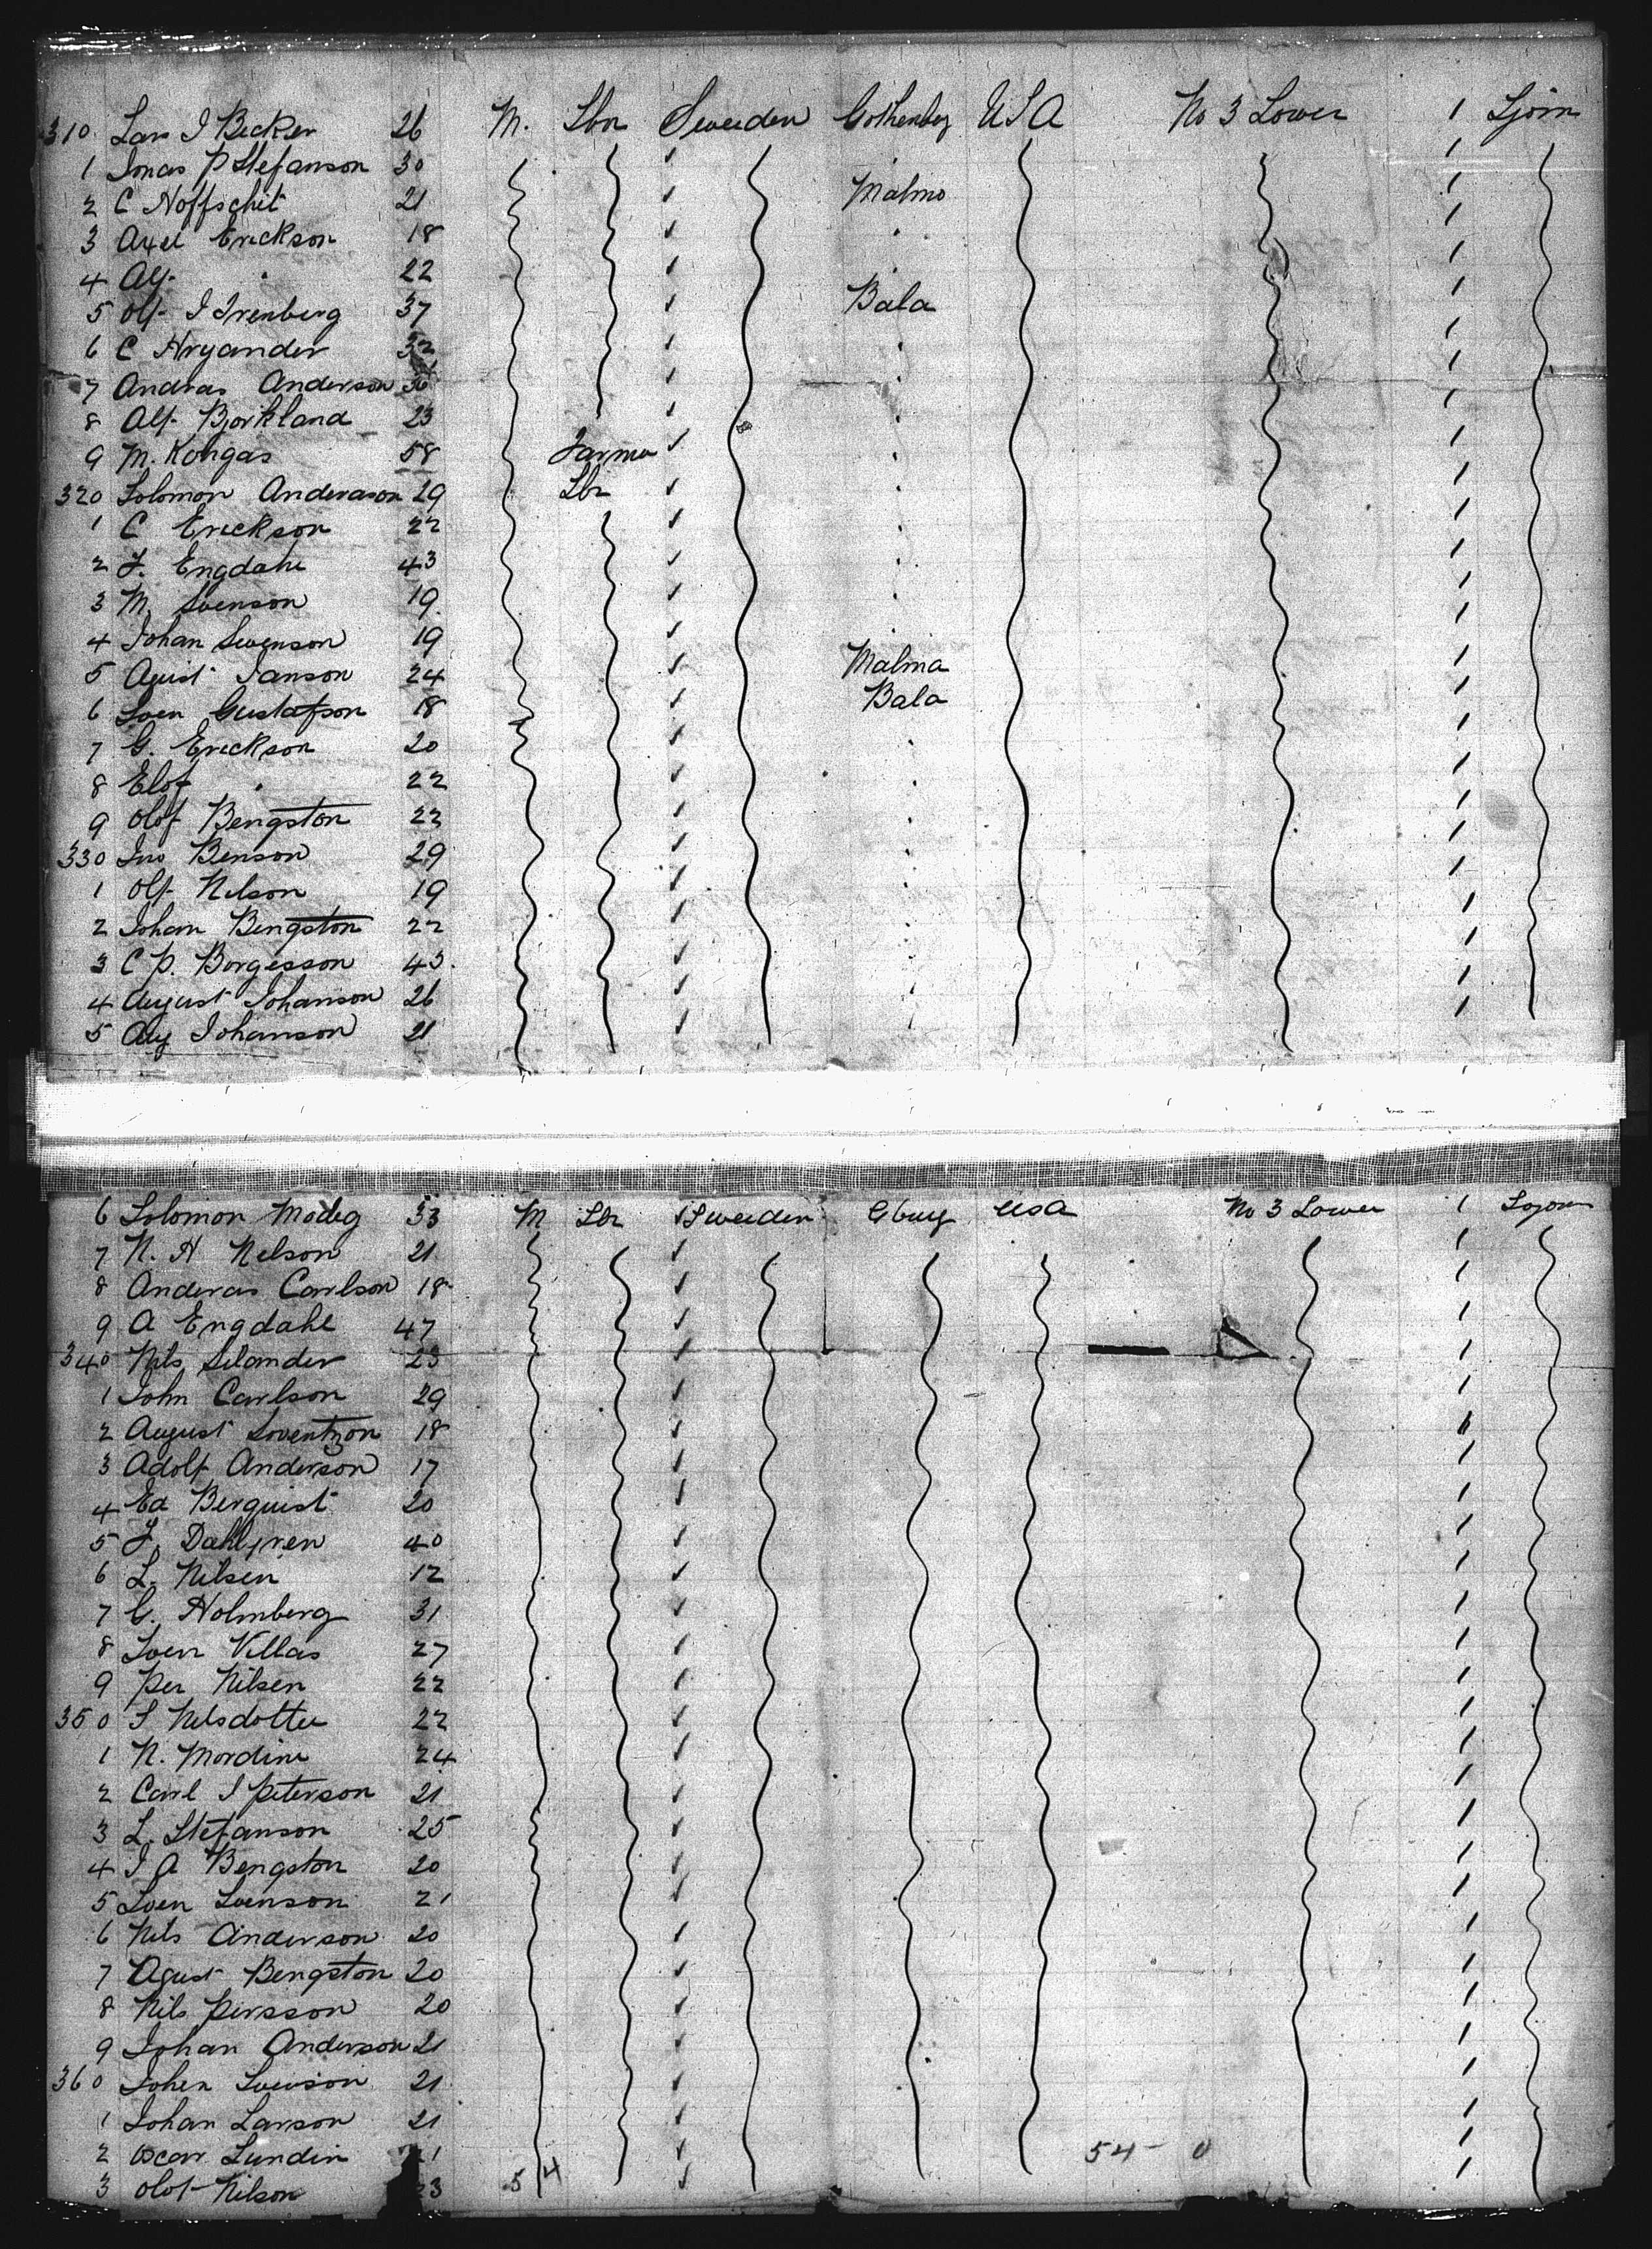 310 Lars J Becker 26 M. Lbr Sweeden Gothenbeg USA No 3 Lower 1 Sjorn
1 Jonas P Stefanson 30
2 C Noffschit 21 Malmo
3 Axel Erickson 18
4 Alf. " 22
5 Olf. J Irenberg 37 Bala
6 C Hryander 32
7 Andras Anderson 36
8 Alf Bjorkland 23
9 M. Kongas 58 Farmer
320 Solomon Anderason 29 Lbr
1 C Erickson 22
2 F. Engdahl 43
3 M. Svenson 19
4 Johan Svenson 19
5 Agust Janson 24 Malma
6 Sven Gustafson 18 Bala
7 G. Erickson 20
8 Elof " 22
9 Olof Bengston 23
330 Jno Benson 29
1 Olf Nilson 19
2 Johan Bengston 22
3 C P. Borgesson 43
4 August Johanson 26
5 Aug Johanson 21
6 Solomon Modig 33 M Lbr Sweeden Gburg USA No 3 Lower 1 Sojorn
7 N. H Nelson 21
8 Anderas Carlson 18
9 A Engdahl 47
340 Nils Selander 23
1 John Carlson 29
2 August Loventzon 18
3 Adolf Anderson 17
4 Ed Berquist 20
5 F. Dahlgren 40
6 L. Nilsen 12
7 C. Holmberg 31
8 Sven Villas 27
9 Per Nilsen 22
350 S Nelsdotter 22
1 N. Mordine 24
2 Carl J Peterson 21
3 L. Stefanson 25
4 J A Bengston 20
5 Sven Svenson 21
6 Nils Anderson 20
7 Agust Bengston 20
8 Nils Persson 20
9 Johan Anderson 21
360 Johen Svenson 21
1 Johan Larson 21
2 Oscar Lundin 21 54 0
3 Olof Nilson 23 54